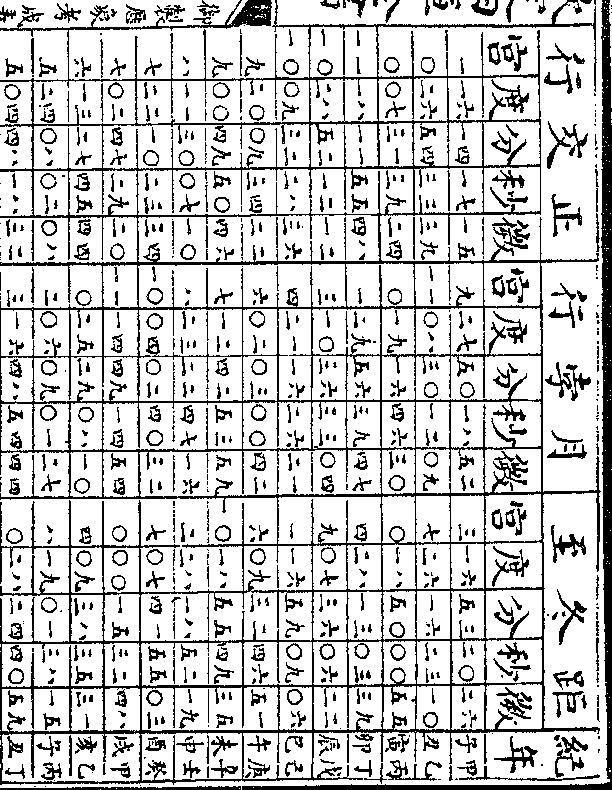 行交正 行孛月 至冬距 紀
宮度分秒微 宮度分秒微 宮度分秒微 年
一 一六 一四 一七 一五 九 二七 五〇 一八 五二 三 一六 五三 二〇 二六 甲子
〇 二六 五四 三三 三九 一一 〇八 三〇 一二 〇九 七 二六 一六 二三 一〇 乙丑
〇 〇七 三一 三九 二四 〇 一九 一六 四六 三〇 〇 一八 五〇 〇〇 五五 丙寅
一一 一八 一一 五五 四八 一 二九 五六 三九 四七 四 二八 一三 〇三 三九 丁卯
一〇 二八 五二 一二 一二 三 一〇 三六 三三 〇四 九 〇七 三六 〇六 二三 戊辰
一〇 〇九 三二 二八 三六 四 二一 一六 二六 二一 一 一六 五九 〇九 〇六 己巳
九 二〇 〇九 三四 二二 六 〇二 〇三 〇〇 四二 六 〇九 三二 四六 五一 庚午
九 〇〇 四九 五〇 四六 七 一二 四二 五三 五九 一〇 一八 五五 四九 三五 辛未
八 一一 三〇 〇七 一〇 八 二三 二二 四七 一六 二 二八 一八 五二 一九 壬申
七 二二 一〇 二三 三四 一〇 〇四 〇二 四〇 三二 七 〇七 四一 五五 〇三 癸酉
七 〇二 四七 二九 二〇 一一 一四 四九 一四 五四 〇 〇〇 一五 三二 四八 甲戌
六 一三 二七 四五 四四 〇 二五 二九 〇八 一〇 四 〇九 三八 三五 三一 乙亥
五 二四 〇八 〇二 〇八 二 〇六 〇九 〇一 二七 八 一九 〇一 三八 一五 丙子
五 〇四 四八 一八 三二 三 一六 四八 五四 四四 〇 二八 二四 四〇 五九 丁丑
御製歷象考成